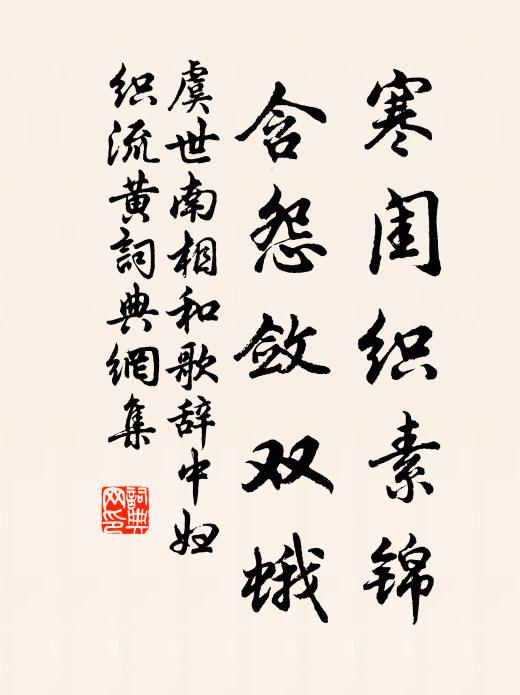 寒闺织素锦
含怨敛双蛾
虞世南相和歌辞中妇
织流黄詞典網集
詞典网印